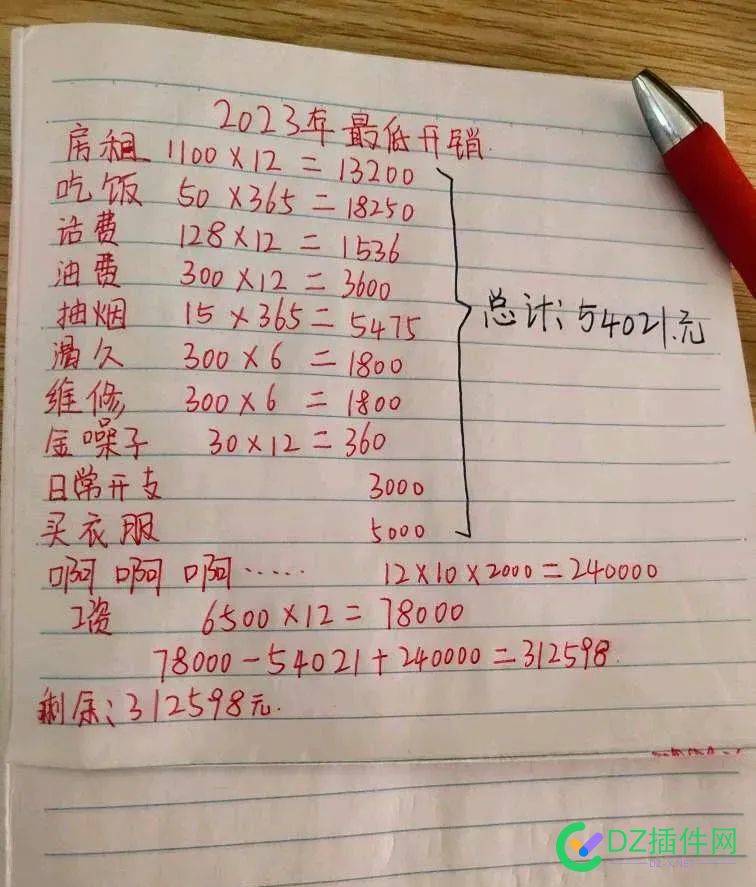 2023年最低开销
房租 1100×12=13200
吃饭 50×365=18250
话费 128×12=1536
油费 300×12=3600
抽烟 15×365=5475
酒久 300×6=1800
维修 300×6=1800
金噪子 30×12=360
日常开支 3000
买衣服 5000
总计:54021.元
啊 啊 啊······ 12×10×2000=240000
工资 6500×12=78000
78000-54021+240000=312598.
剩余:312598元.
DZ插件网
DZ-X.NET